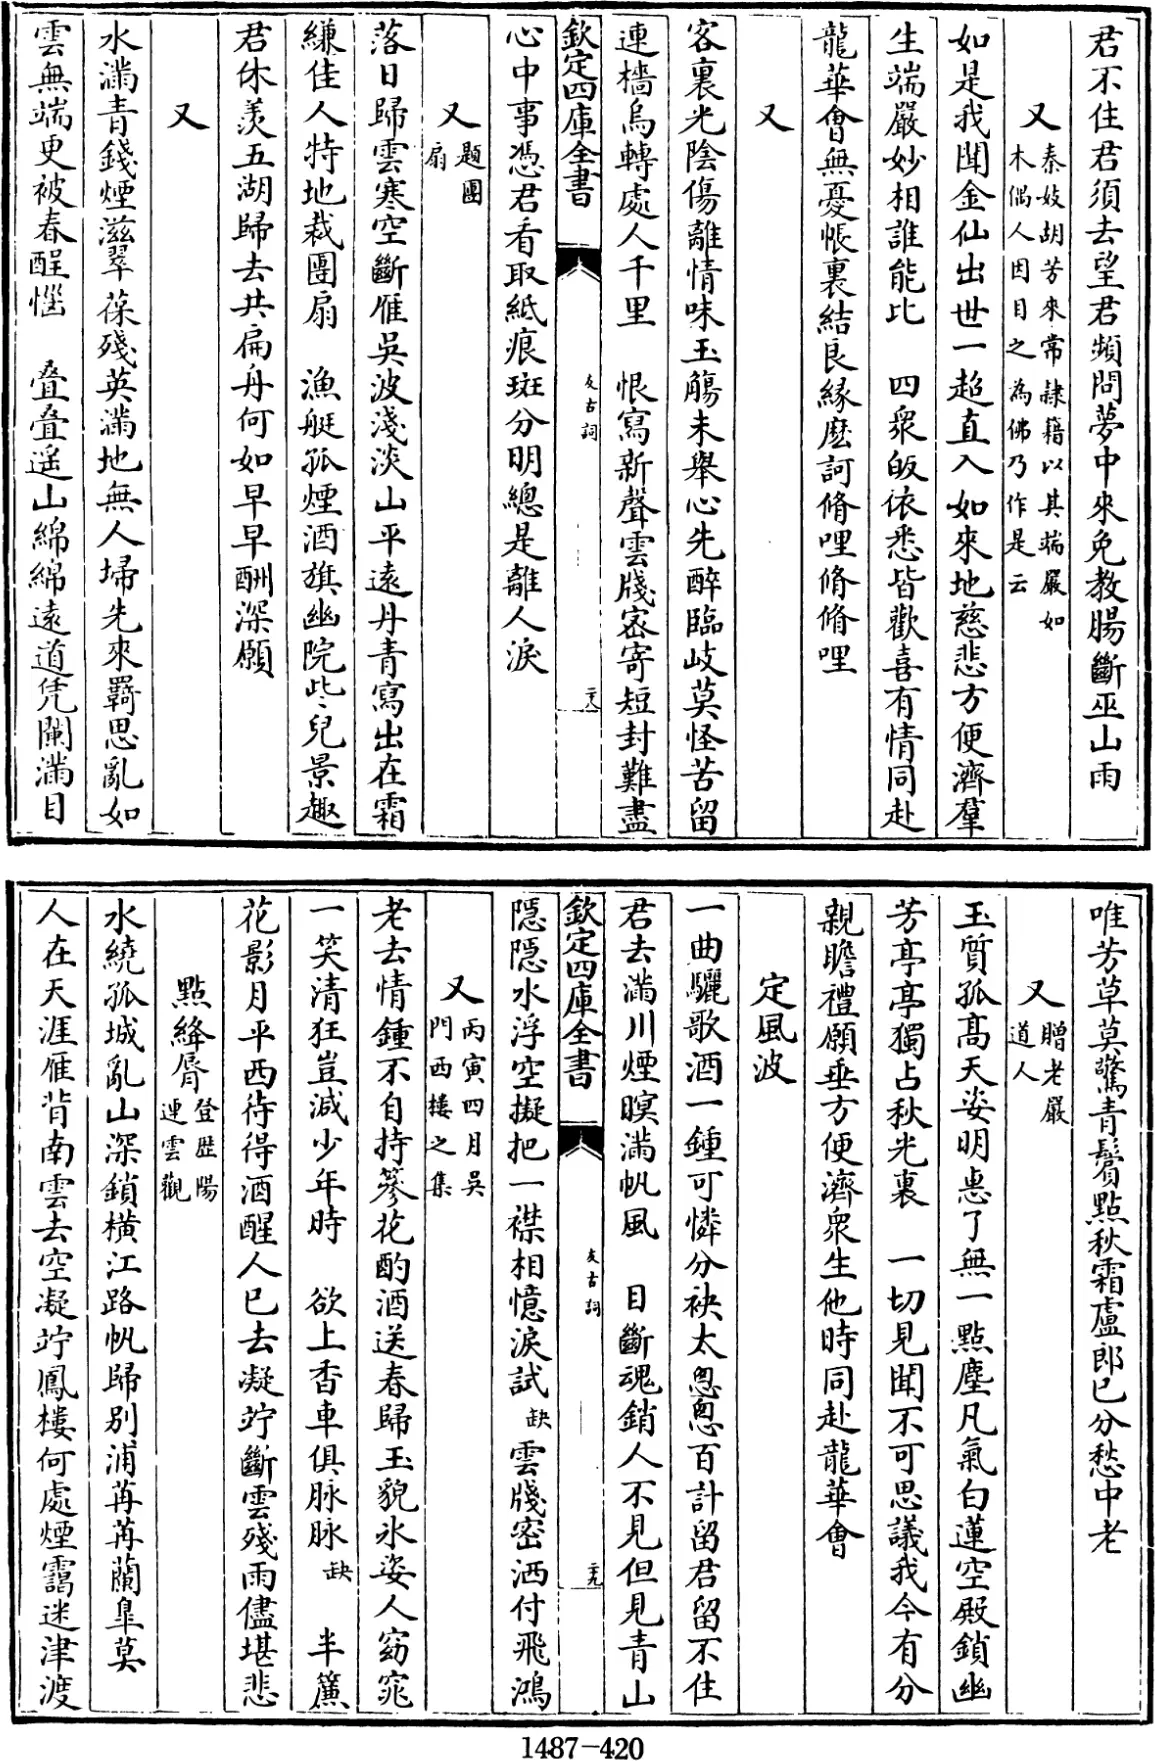 君不住君須去望君頻問夢中來免教腸斷巫山雨
又秦妓胡芳來常隷籍以其端嚴如
木偶人因目之為佛乃作是云
如是我聞金仙出世一超直入如來地慈悲方便濟羣
生端嚴妙相誰能比　四衆皈依悉皆歡喜有情同赴
龍華會無憂帳裏結良緣麽訶脩哩脩脩哩
又
客裏光陰傷離情味玉觴未舉心先醉臨岐莫怪苦留
連檣烏轉處人千里　恨寫新聲雲牋密寄短封難盡
欽定四庫全書
友古詞
二十八
心中事憑君看取紙痕斑分明總是離人淚
又題團
扇
落日歸雲寒空斷雁吳波淺淡山平遠丹青寫出在霜
縑佳人特地裁團扇　漁艇孤煙酒旗幽院些兒景趣
君休羨五湖歸去共扁舟何如早早酬深願
又
水滿青錢煙滋翠葆殘英滿地無人埽先來羇思亂如
雲無端更被春酲惱　疊疊遥山綿綿遠道凭闌滿目
唯芳草莫驚青鬢點秋霜盧郎已分愁中老
又贈老嚴
道人
玉質孤高天姿明惠了無一點塵凡氣白蓮空殿鎖幽
芳亭亭獨占秋光裏　一切見聞不可思議我今有分
親瞻禮願垂方便濟衆生他時同赴龍華會
定風波
一曲驪歌酒一鍾可憐分袂太怱怱百計留君留不住
君去滿川煙暝滿帆風　目斷魂銷人不見但見青山
欽定四庫全書
友古詞
二十九
隱隱水浮空擬把一襟相憶淚試缺雲牋密洒付飛鴻
又丙寅四月吳
門西樓之集
老去情鍾不自持篸花酌酒送春歸玉貌氷姿人窈窕
一笑清狂豈減少年時　欲上香車俱脉脉缺　半簾
花影月平西待得酒醒人已去凝竚斷雲殘雨儘堪悲
點絳脣登歷陽
連雲觀
水繞孤城亂山深鎖横江路帆歸别浦苒苒蘭臯莫
人在天涯雁背南雲去空凝竚鳳樓何處煙靄迷津渡
1487-420